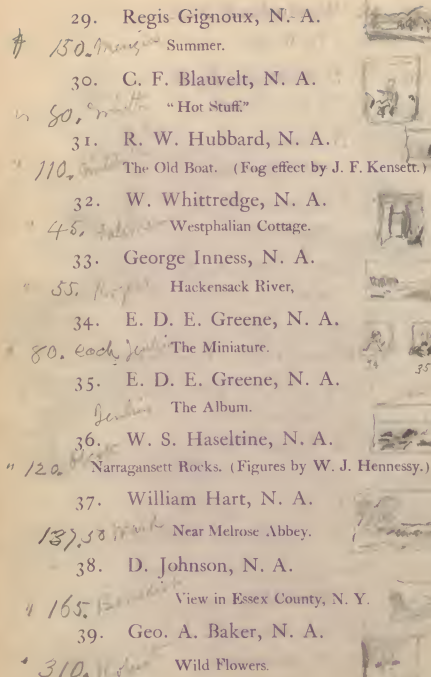 29. Regis Gignoux, N. A.
$ 150. Summer.
30. C. F. Blauvelt, N. A.
" 80. "Hot Stuff."
31. R. W. Hubbard, N. A.
" 110. The Old Boat. (Fog effect by J. F. Kensett.)
32. W. Whittredge, N. A.
" 45. Westphalian Cottage.
33. George Inness, N. A.
" 55. Hackensack River,
34. E. D. E. Greene, N. A.
" 80. each The Miniature.
34 35
35. E. D. E. Greene, N. A.
The Album.
36. W. S. Haseltine, N. A.
" 120. Narragansett Rocks. (Figures by W. J. Hennessy.)
37. William Hart, N. A.
137.50 Near Melrose Abbey.
38. D. Johnson, N. A.
" 165. View in Essex County, N. Y.
39. Geo. A. Baker, N. A.
" 310. Wild Flowers.